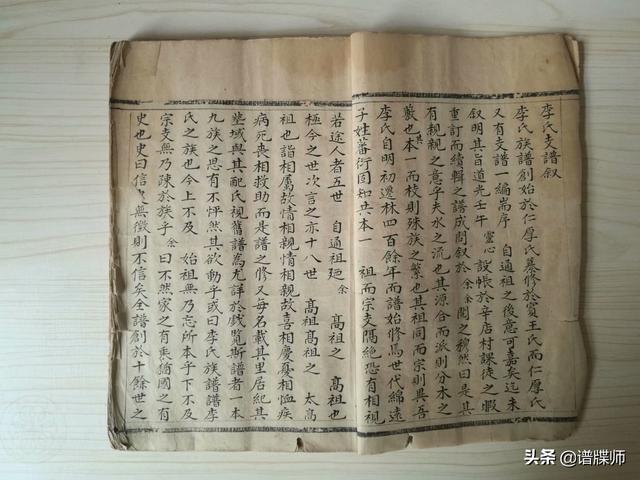 李氏支譜叙
李氏族譜創始於仁厚氏纂修於賓王氏而仁厚氏
又有支譜一編耑序 自通祖之後意可嘉矣迄未
叙明其旨道光壬午 靈心 設帳於辛店村課徒之暇
重訂而續輯之譜成問叙於余余閱之穆然曰是其
有親親之意乎夫水之流也其源合而派則分木之
也其本一而枝則殊族之繁也其祖同而宗則異吾
李氏自明初遷林四百餘年而譜始修焉世代綿遠
子姓蕃衍固知共本一 祖而宗支隔絶恐有相視
若途人者五世 自通祖廼余 高祖之 高祖也
極今之世次言之亦十八世 高祖高祖之 太高
祖也誼相屬故情相親情相親故喜相慶憂相恤疾
病死喪相救助而是譜之修又每名載其里居紀其
塋域與其配氏視舊譜為尤詳於戲覽斯譜者一本
九族之思有不怦然其欲動乎或曰李氏族譜譜李
氏之族也今上不及 始祖無乃忘所本乎下不及
宗支無乃疎於族乎余曰不然家之有乘猶國之有
史也史曰信史無徵則不信矣全譜創於十餘世之
头条 @谱牒师